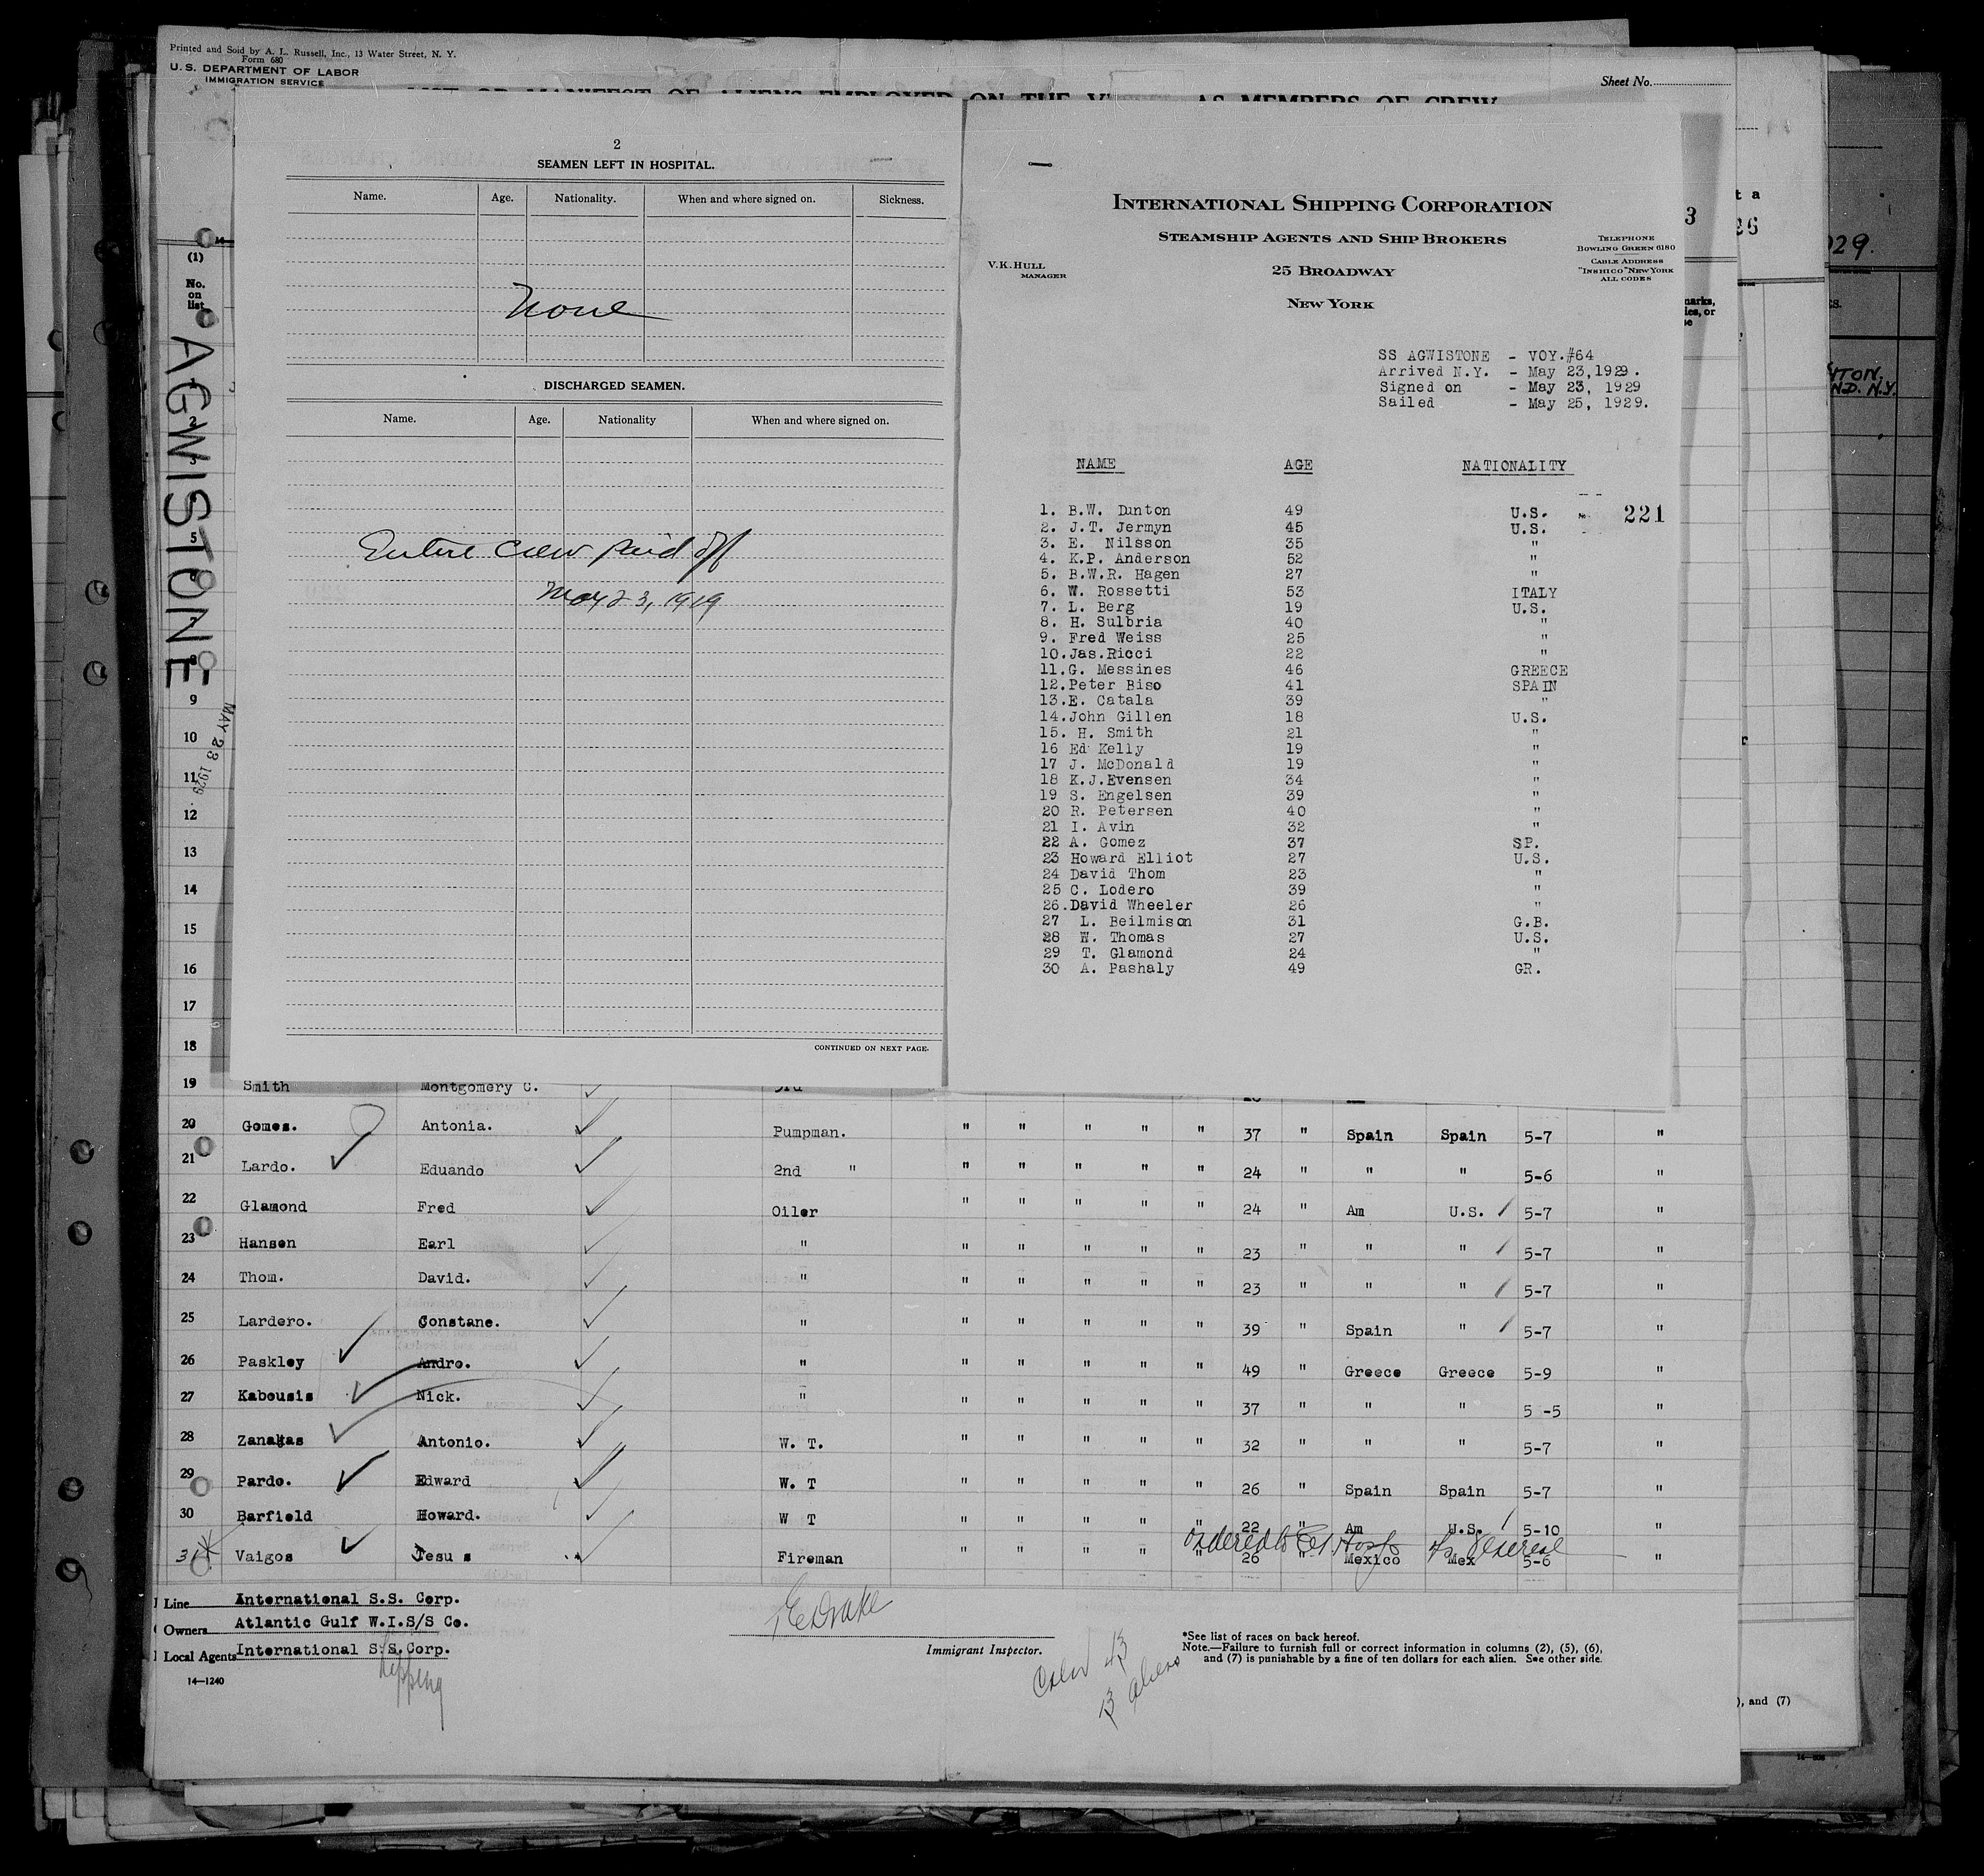 Printed and Sold by A. L. Russell, Inc., 13 Water Street, N. Y.
Form 680
U. S. DEPARTMENT OF LABOR
IMMIGRATION SERVICE
Sheet No.
LIST OR MANIFEST OF ALIENS EMPLOYED ON THE AS MEMBERS OF CREW
(1)
No. on list
AGWISTONE
MAY 23 1929
2
SEAMEN LEFT IN HOSPITAL.
Name. Age. Nationality. When and where signed on. Sickness.
None
DISCHARGED SEAMEN.
Name. Age. Nationality When and where signed on.
Entire crew paid off
May 23, 1929
CONTINUED ON NEXT PAGE.
INTERNATIONAL SHIPPING CORPORATION
STEAMSHIP AGENTS AND SHIP BROKERS
25 BROADWAY
NEW YORK
V.K.HULL
MANAGER
TELEPHONE
BOWLING GREEN 6180
CABLE ADDRESS
"INSHICO" NEW YORK
ALL CODES
SS AGWISTONE - VOY.#64
Arrived N.Y. - May 23,1929.
Signed on - May 23, 1929
Sailed - May 25, 1929.
NAME AGE NATIONALITY
221
1. B.W. Dunton 49 U.S.
2. J.T. Jermyn 45 U.S.
3. E. Nilsson 35 "
4. K.P. Anderson 52 "
5. B.W.R. Hagen 27 "
6. W. Rossetti 53 ITALY
7. L. Berg 19 U.S.
8. H. Sulbria 40 "
9. Fred Weiss 25 "
10.Jas.Ricci 22 "
11.G. Messines 46 GREECE
12.Peter Biso 41 SPAIN
13.E. Catala 39 "
14.John Gillen 18 U.S.
15. H. Smith 21 "
16 Ed Kelly 19 "
17 J. McDonald 19 "
18 K.J.Evensen 34 "
19 S. Engelsen 39 "
20 R. Petersen 40 "
21 I. Avin 32 "
22 A. Gomez 37 SP.
23 Howard Elliot 27 U.S.
24 David Thom 23 "
25 C. Lodero 39 "
26.David Wheeler 26 "
27 L. Beilmison 31 G.B.
28 W. Thomas 27 U.S.
29 T. Glamond 24 "
30 A. Pashaly 49 GR.
2
3
5
7
8
9
10
11
12
13
14
15
16
17
18
19 Smith Montgomery C. 3rd
20 Gomes. Antonia. Pumpman. " " " " " 37 " Spain Spain 5-7 "
21 Lardo. Eduando 2nd " " " " " " 24 " " " 5-6 "
22 Glamond Fred Oiler " " " " " 24 " Am U.S. 5-7 "
23 Hansen Earl " " " " " " 23 " " " 5-7 "
24 Thom. David. " " " " " " 23 " " " 5-7 "
25 Lardero. Constane. " " " " " " 39 " Spain " 5-7 "
26 Paskley Andro. " " " " " " 49 " Greece Greece 5-9 "
27 Kabousis Nick. " " " " " " 37 " " " 5 -5 "
28 Zanakas Antonio. W. T. " " " " " 32 " " " 5-7 "
29 Pardo. Edward W. T " " " " " 26 " Spain Spain 5-7 "
30 Barfield Howard. W T " " " " " 22 " Am U.S. 5-10 "
31 Vaigos Jesus Fireman " " " " " 26 " Mexico Mex 5-6 "
Line International S.S. Corp.
Owners Atlantic Gulf W.I.S/S Co.
Local Agents International S.S.Corp.
Shipping
14—1240
Immigrant Inspector.
Crew 43
13 aliens
*See list of races on back hereof.
Note.—Failure to furnish full or correct information in columns (2), (5), (6),
and (7) is punishable by a fine of ten dollars for each alien. See other side.
), and (7)
029.